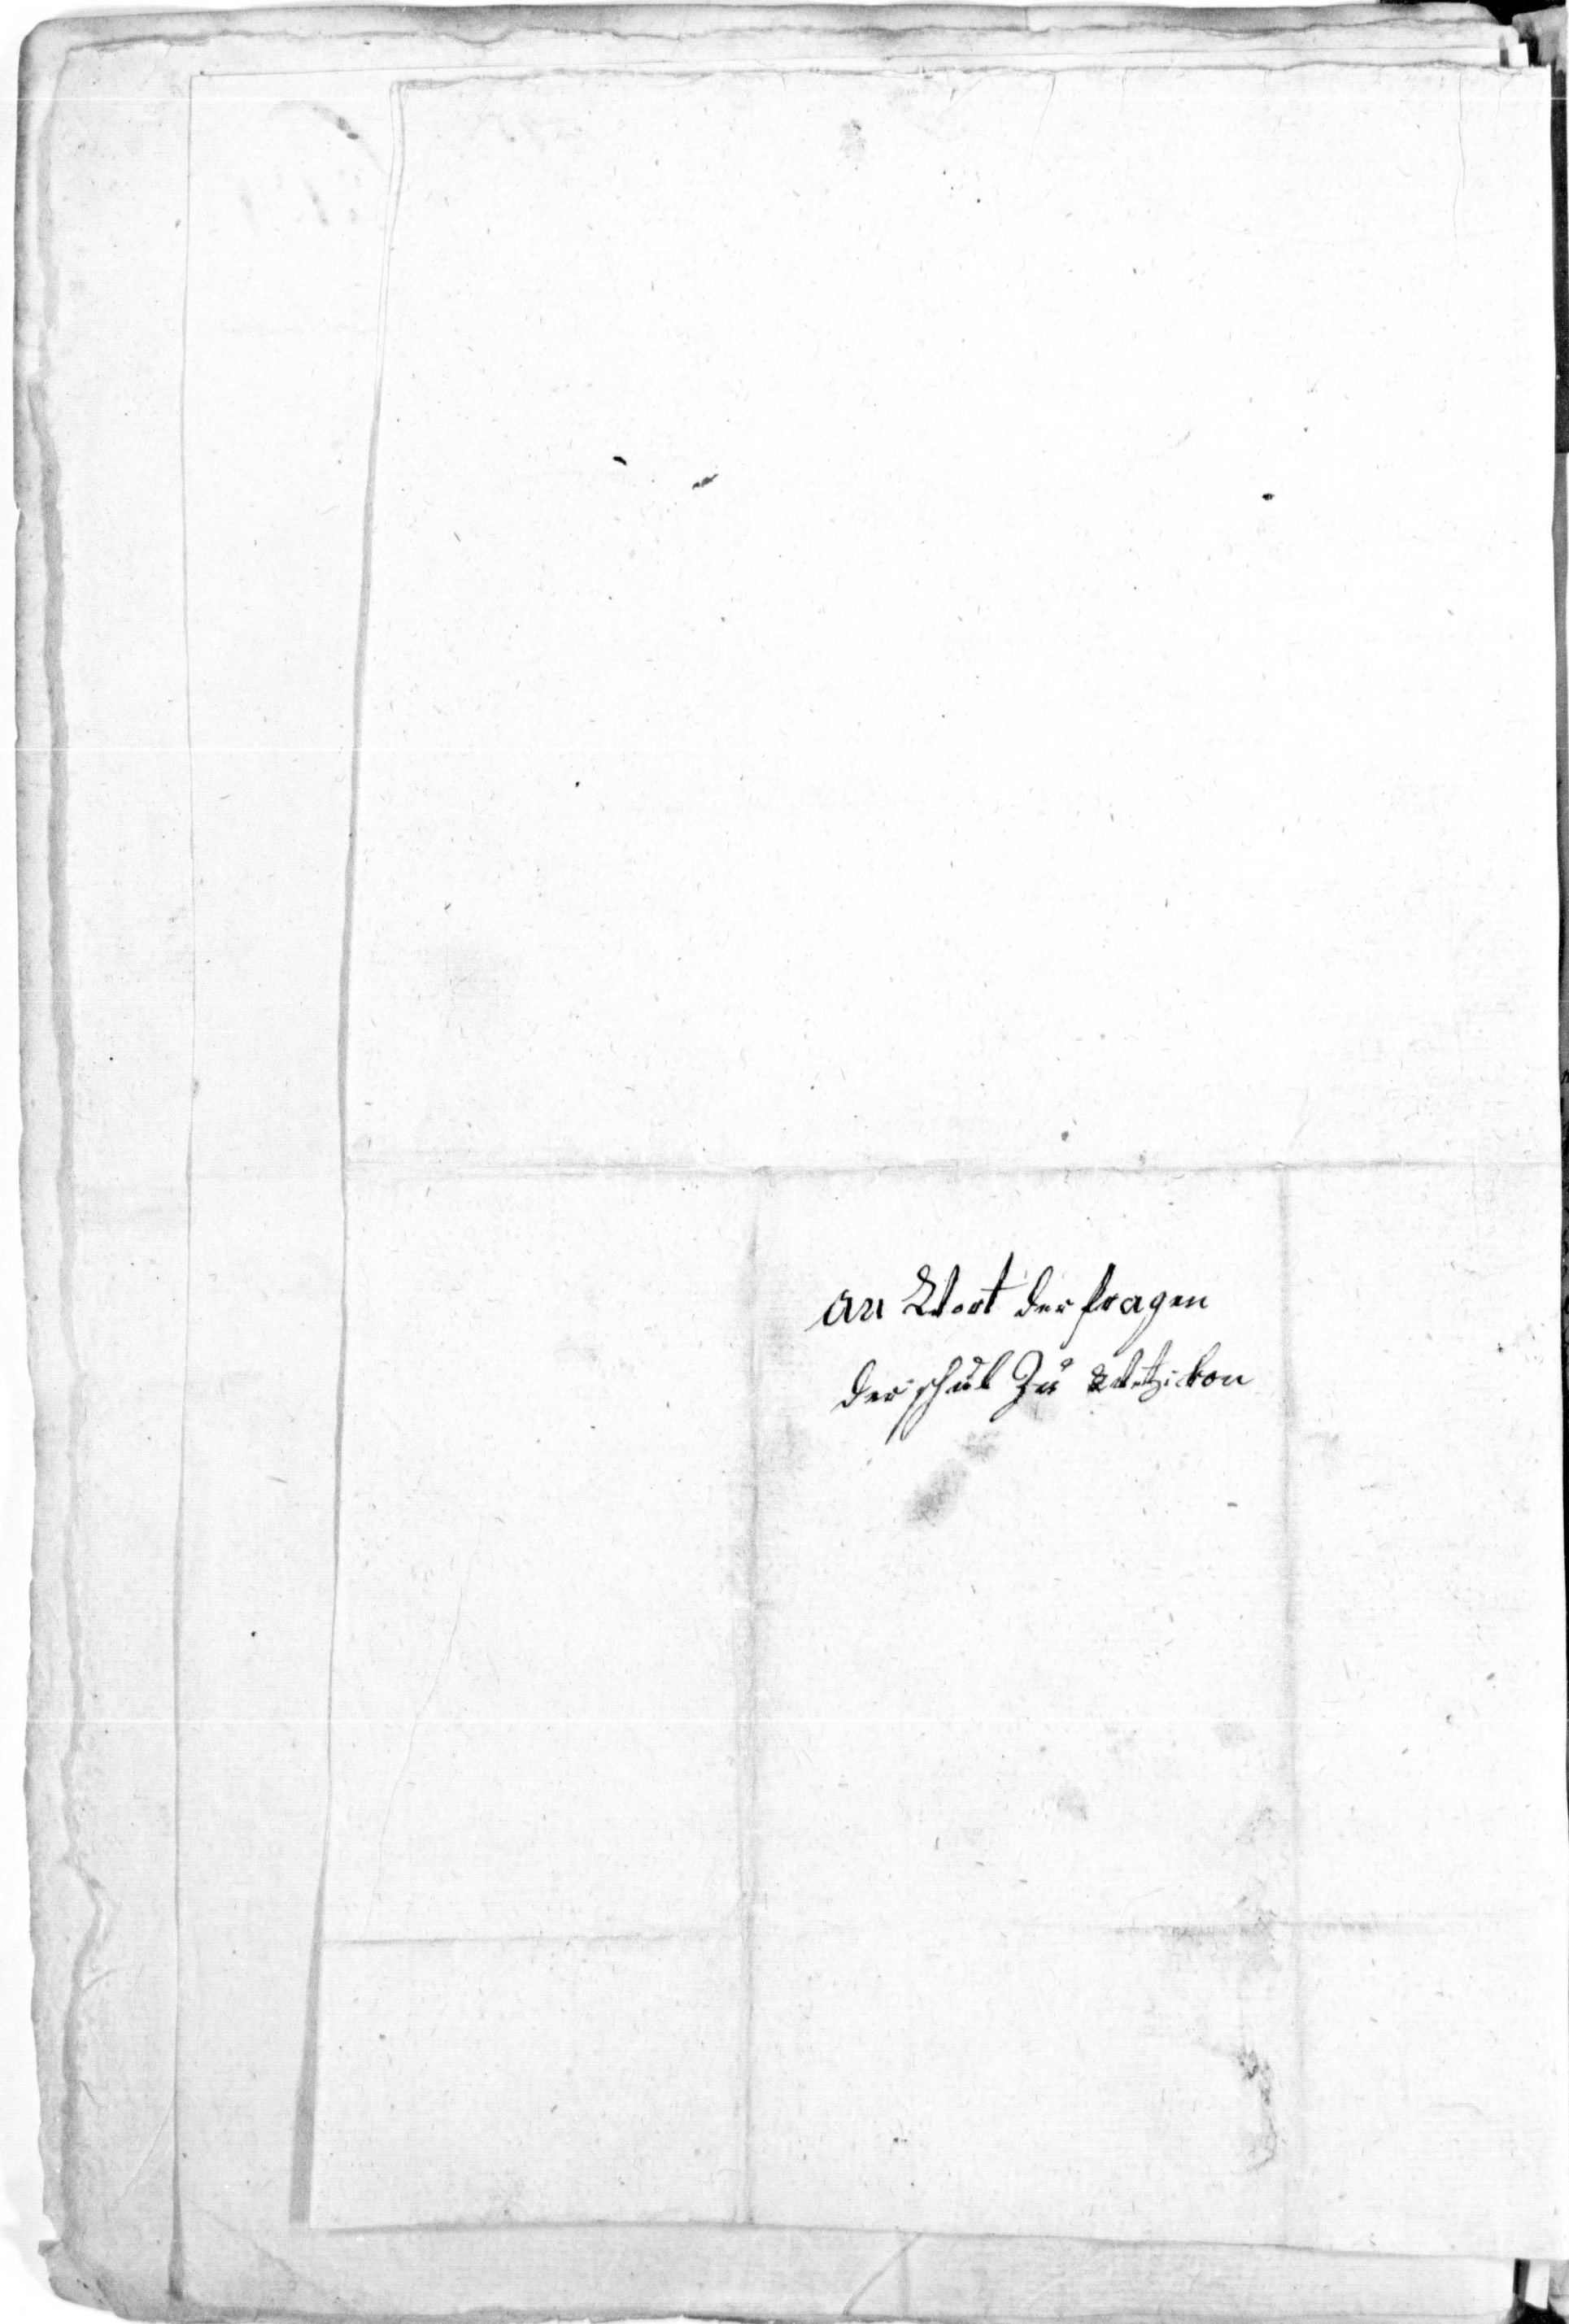 an Wort der fragen
der schul Zu Wetzikon